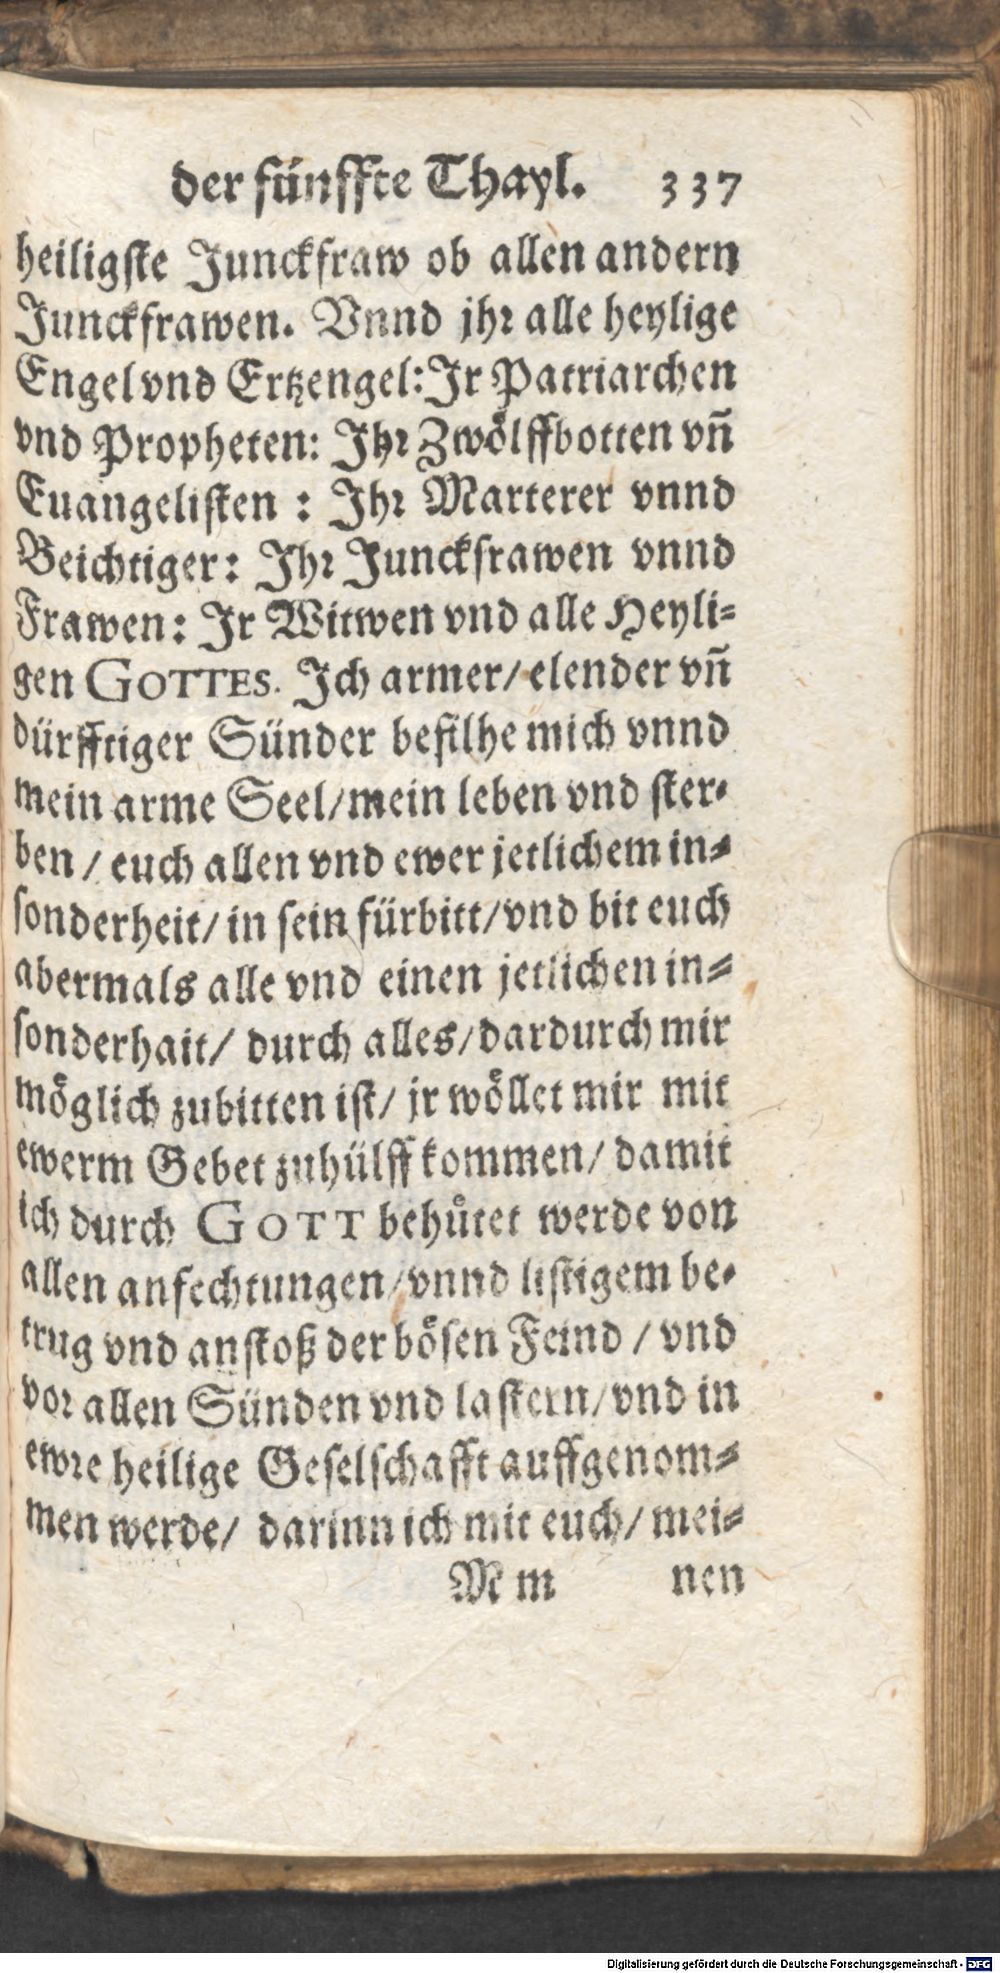 der fünffte Thayl. 337
heiligste Junckfraw ob allen andern
Junckfrawen. Vnnd jhr alle heylige
Engel vnd Ertzengel: Jr Patriarchen
vnd Propheten: Jhr Zwölffbotten vñ
Euangelisten : Jhr Marterer vnnd
Beichtiger: Jhr Junckfrawen vnnd
Frawen: Jr Witwen vnd alle Heyli-
gen GOTTES. Jch armer/ elender vñ
dürfftiger Sünder befilhe mich vnnd
mein arme Seel/ mein leben vnd ster-
ben / euch allen vnd ewer jetlichem in-
sonderheit/ in sein fürbitt/ vnd bit euch
abermals alle vnd einen jetlichen in-
sonderhait/ durch alles/ dardurch mir
möglich zubitten ist/ jr wöllet mir mit
ewerm Gebet zuhülff kommen/ damit
ich durch GOTT behütet werde von
allen anfechtungen/ vnnd listigem be-
trug vnd anstoß der bösen Feind / vnd
vor allen Sünden vnd lastern/ vnd in
ewre heilige Geselschafft auffgenom-
men werde/ darinn ich mit euch/ mei-
M m nen
Digitalisierung gefördert durch die Deutsche Forschungsgemeinschaft - DFG